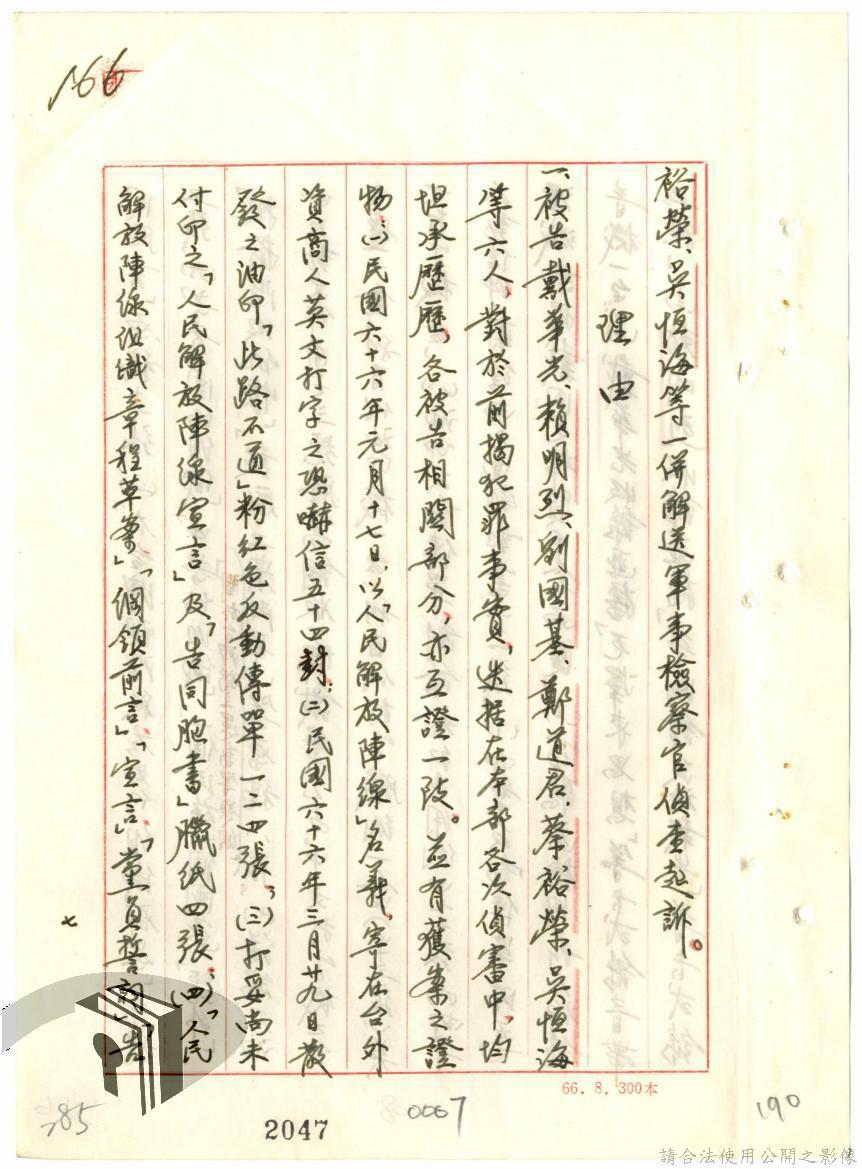 166
裕榮、吳恒海等一併解送軍事檢察官偵查起訴。
理由
一、被告戴華光、賴明烈、劉國基、鄭道君、蔡裕榮、吳恒海
等六人，對於前揭犯罪事實，迭據在本部各次偵審中，均
坦承歷歷，各被告相關部分，亦互證一致。並有獲案之證
物：(一)民國六十六年元月十七日，以「人民解放陣線」名義，寄在台外
資商人英文打字之恐嚇信五十四封；(二)民國六十六年三月廿九日散
發之油印「此路不通」粉紅色反動傳單一二四張；(三)打妥尚未
付印之「人民解放陣線宣言」及「告同胞書」臘紙四張；(四)「人民
解放陣線組織章程草案」、「綱領前言」、「宣言」、「黨員誓詞」、「告
七
66.8.300本
285
2047
0007
190
請合法使用公開之影像